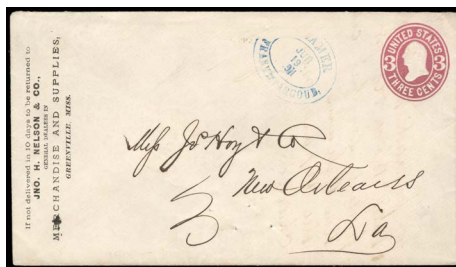 If not delivered in 10 days to be returned to
JNO. H. NELSON & CO.,
GENERAL DEALERS IN
MERCHANDISE AND SUPPLIES,
GREENVILLE, MISS.
UNITED STATES
3 3
THREE CENTS
Jos Hoy & Co
New Orleans
La